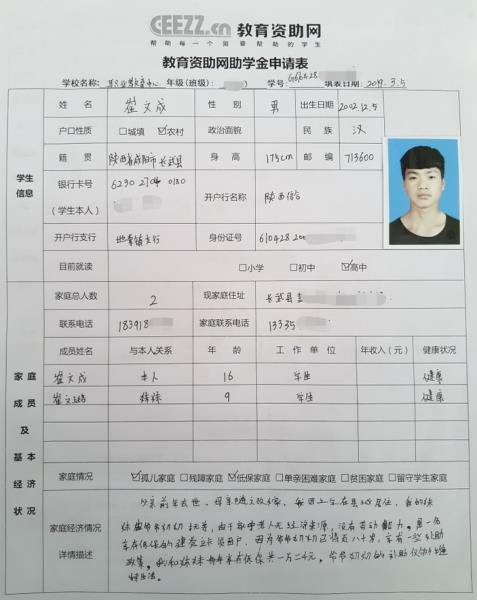 CEEZZ.cn 教育资助网
帮助每一个需要帮助的学生
教育资助网助学金申请表
学校名称: 职业教育中心 年级(班级): 学号: 填表日期: 2019.3.5
学生信息
姓名 崔文成 性别 男 出生日期 2002.12.5
户口性质 □城填 ☑农村 政治面貌 民族 汉
籍贯 陕西省咸阳市长武县 身高 175cm 邮编 713600
银行卡号 (学生本人) 6230 2704 0180 开户行名称 陕西信合
开户行支行 地掌镇支行 身份证号 610428 200
目前就读 □小学 □初中 ☑高中
家庭成员及基本经济状况
家庭总人数 2 现家庭住址 长武县
联系电话 183918 家庭联系电话 13335
成员姓名 与本人关系 年龄 工作单位 年收入(元) 健康状况
崔文成 本人 16 学生 健康
崔文 妹妹 9 学生 健康
家庭情况 ☑孤儿家庭 □残障家庭 ☑低保家庭 □单亲困难家庭 □贫困家庭 □留守学生家庭
家庭经济情况详情描述
父亲前年去世、母亲随之改嫁,
由于 老人无经济来源,没有劳动能力。是一個
享有低保的建档立卡贫困户, 八十岁,享有一些补助
政策。我和妹妹每年享有低保共一万二千元,